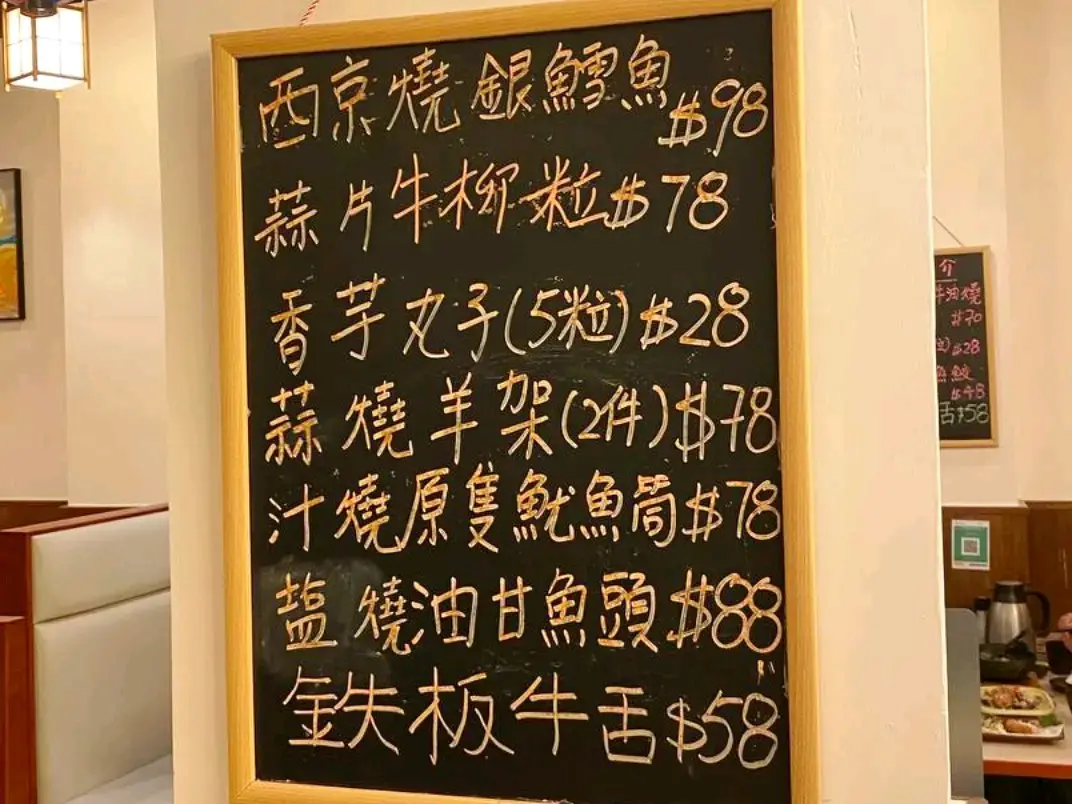 西京燒銀鱈魚 $98
蒜片牛柳粒 $78
香芋丸子(5粒) $28
蒜燒羊架(2件) $78
汁燒原隻魷魚筒 $78
塩燒油甘魚頭 $88
鉄板牛舌 $58
介
油燒
$70
$28
舌$58